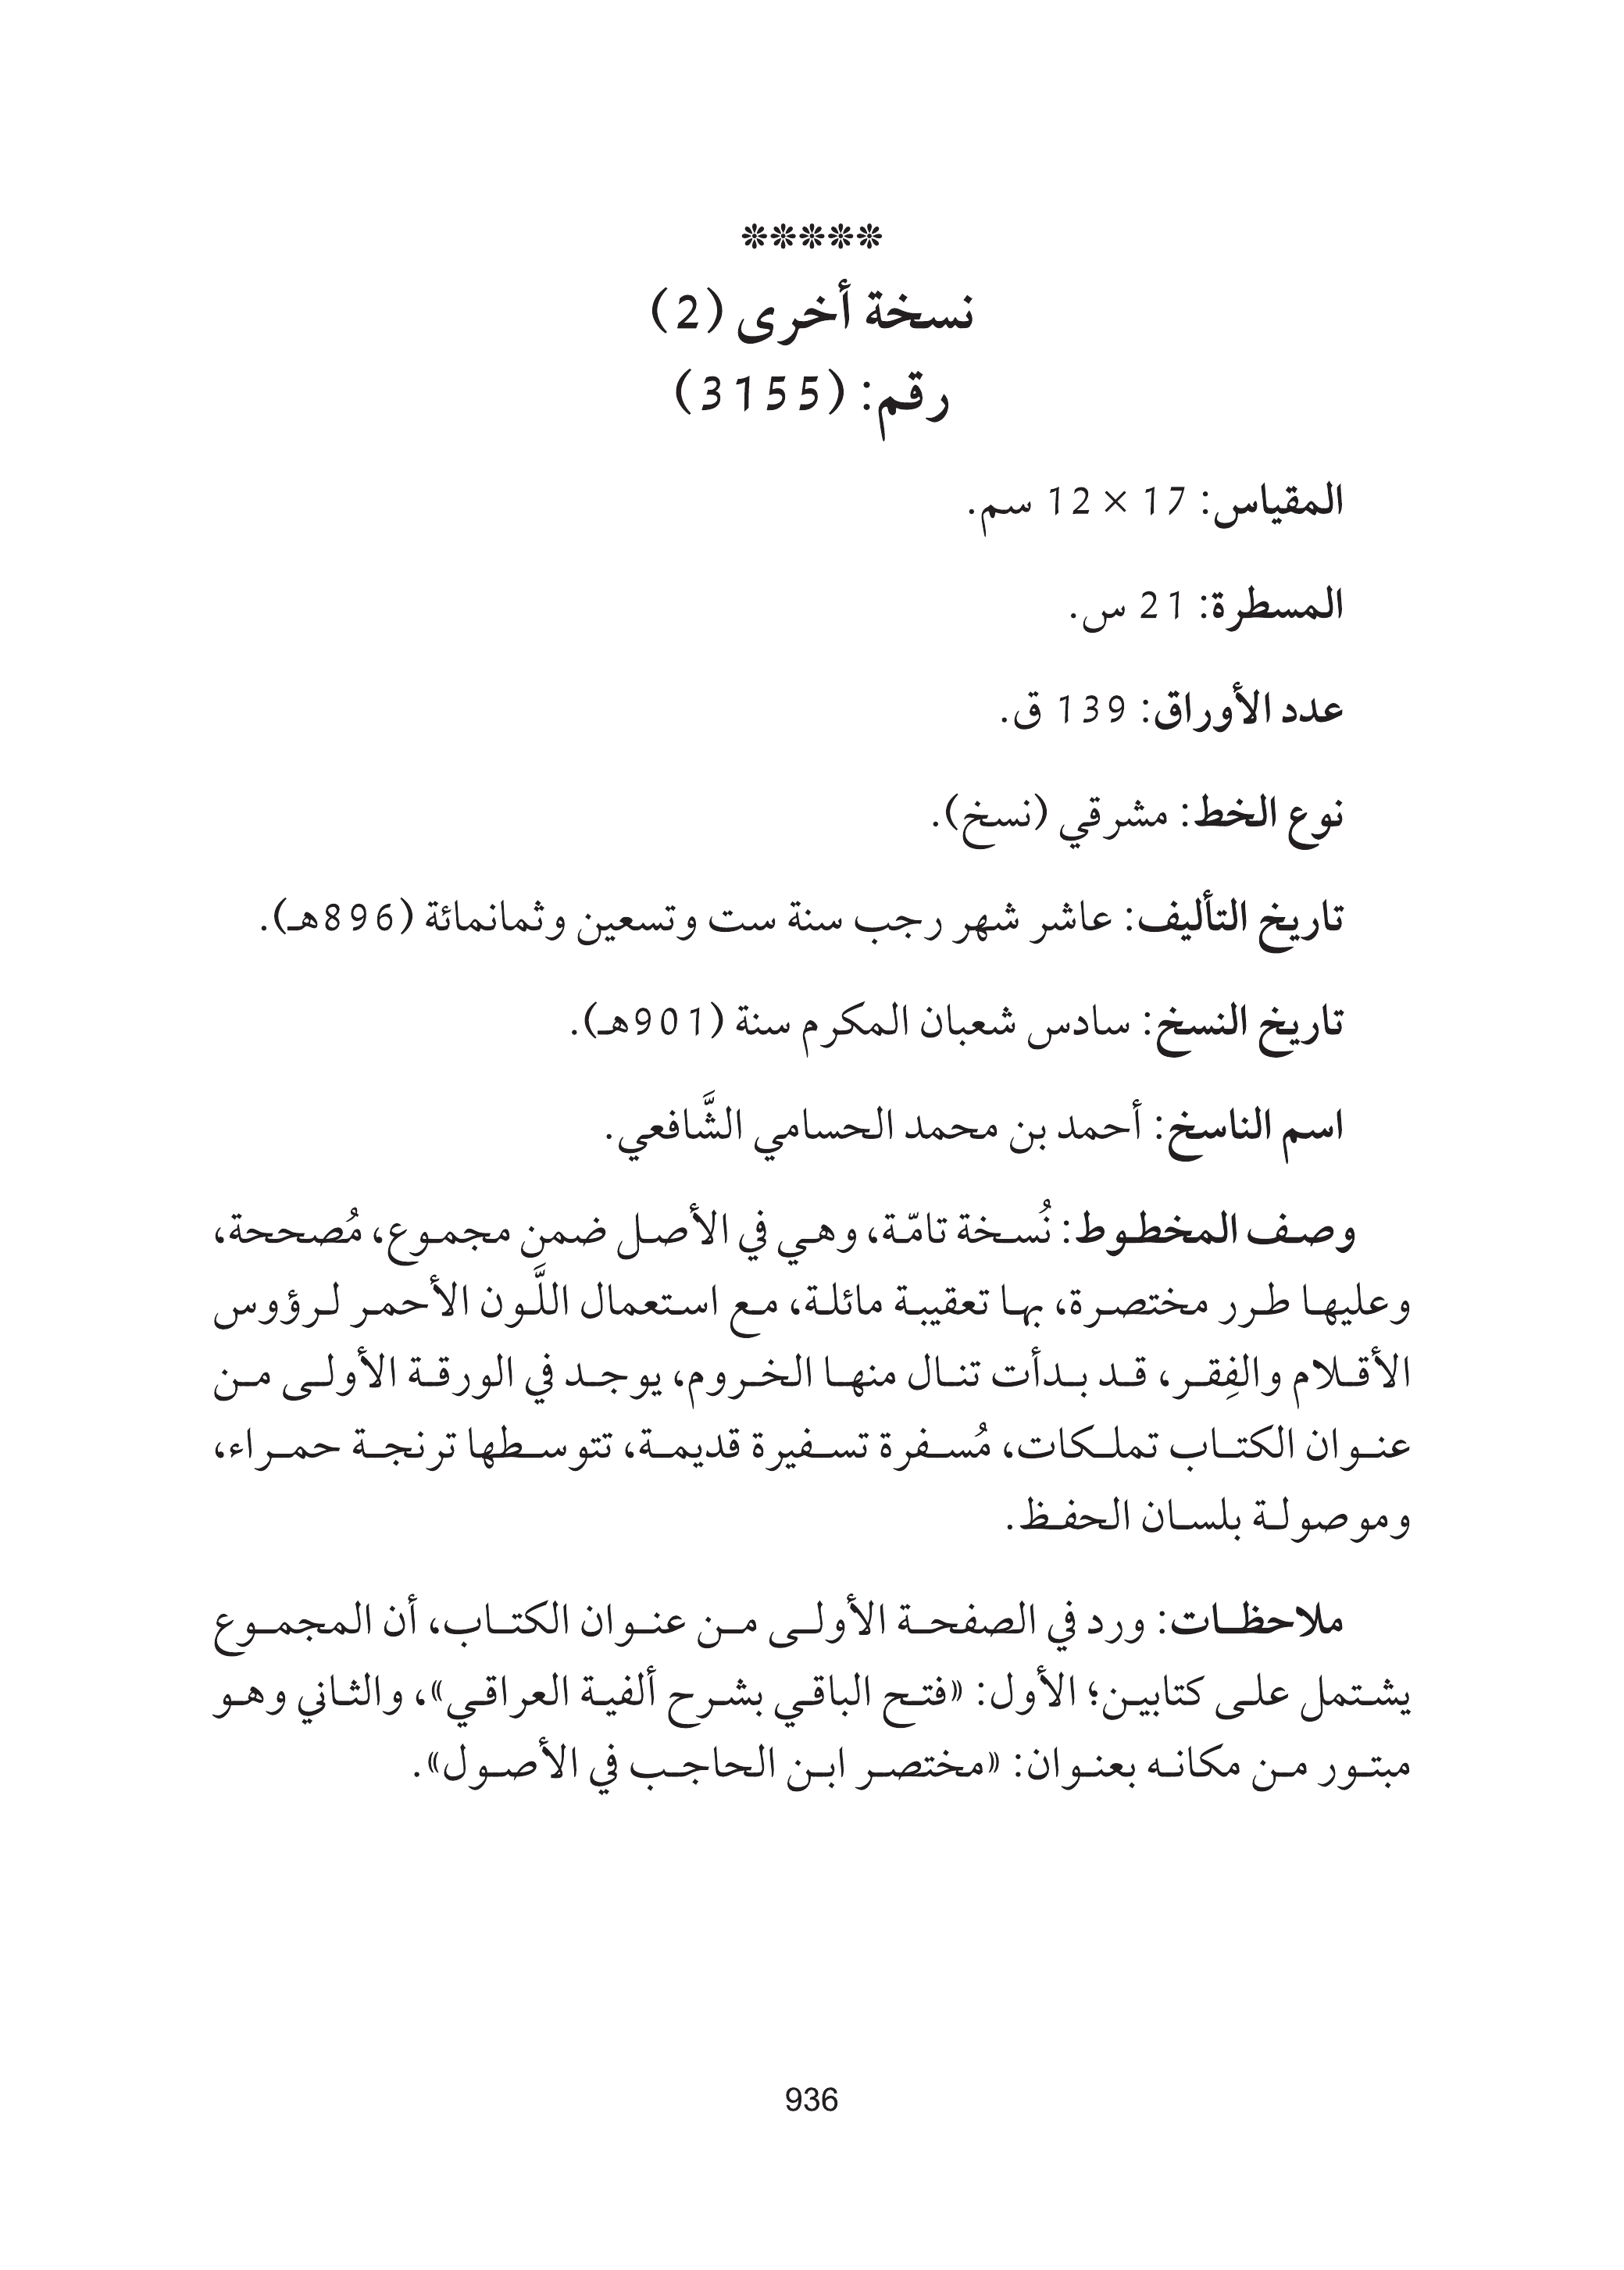 ❊❊❊❊❊
نسخة أخرى (2)
رقم: (3155)
المقياس: 17 × 12 سم.
المسطرة: 21 س.
عدد الأوراق: 139 ق.
نوع الخط: مشرقي (نسخ).
تاريخ التأليف: عاشر شهر رجب سنة ست وتسعين وثمانمائة (896هـ).
تاريخ النسخ: سادس شعبان المكرم سنة (901هـ).
اسم الناسخ: أحمد بن محمد الحسامي الشَّافعي.
وصف المخطوط: نُسخة تامّة، وهي في الأصل ضمن مجموع، مُصححة،
وعليها طرر مختصرة، بها تعقيبة مائلة، مع استعمال اللَّون الأحمر لرؤوس
الأقلام والفِقر، قد بدأت تنال منها الخروم، يوجد في الورقة الأولى من
عنوان الكتاب تملكات، مُسفرة تسفيرة قديمة، تتوسطها ترنجة حمراء،
وموصولة بلسان الحفظ.
ملاحظات: ورد في الصفحة الأولى من عنوان الكتاب، أن المجموع
يشتمل على كتابين؛ الأول: «فتح الباقي بشرح ألفية العراقي»، والثاني وهو
مبتور من مكانه بعنوان: «مختصر ابن الحاجب في الأصول».
936